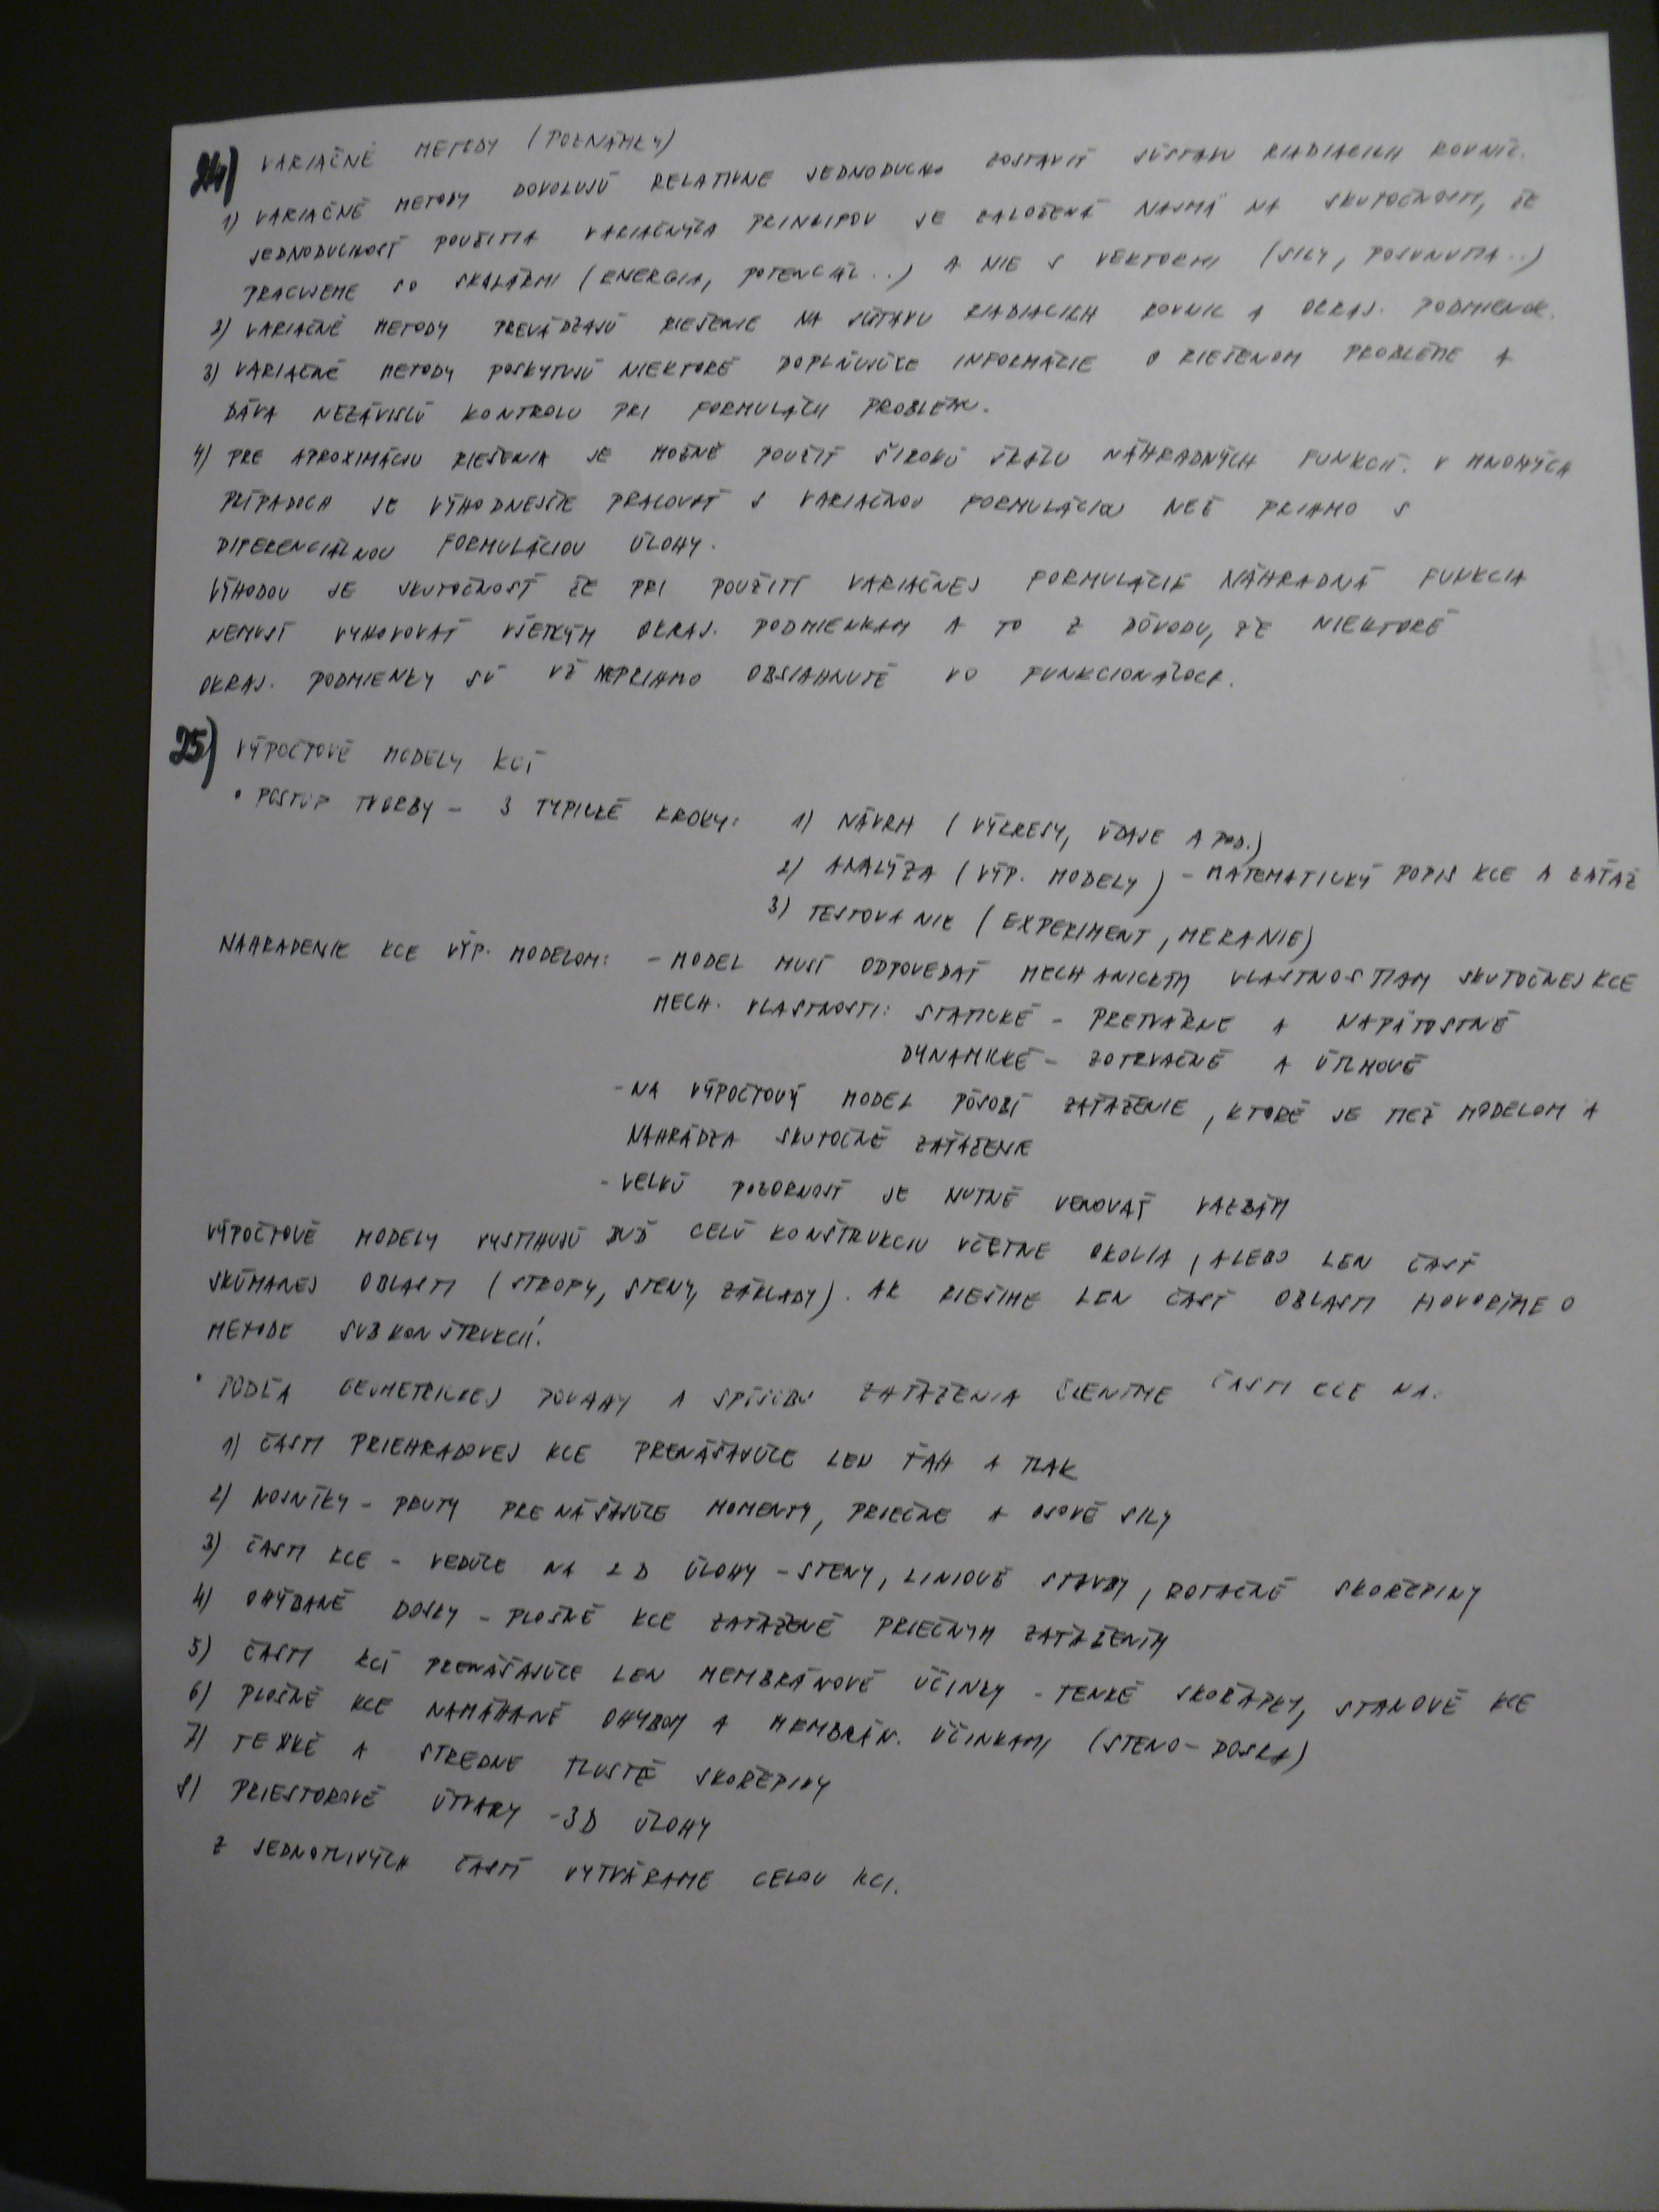 24) VARIAČNÉ METÓDY (POZNÁMKY)
1) VARIAČNÉ METÓDY DOVOLUJÚ RELATIVNE JEDNODUCHO ZOSTAVIŤ SÚSTAVU RIADIACICH ROVNÍC.
JEDNODUCHOSŤ POUŽITIA VARIAČNÝCH PRINCIPOV JE ZALOŽENÁ NAJMÄ NA SKUTOČNOSTI, ŽE
PRACUJEME SO SKALÁRMI (ENERGIA, POTENCIÁL..) A NIE S VEKTORMI (SILY, POSUNUTIA..)
2) VARIAČNÉ METODY PREVÁDZAJÚ RIEŠENIE NA SÚSTAVU RIADIACICH ROVNIC A OKRAJ. PODMIENOK.
3) VARIAČNÉ METODY POSKYTUJÚ NIEKTORÉ DOPLŇUJÚCE INFORMÁCIE O RIEŠENOM PROBLÉME A
DÁVA NEZÁVISLÚ KONTROLU PRI FORMULÁCII PROBLÉMU.
4) PRE APROXIMÁCIU RIEŠENIA JE MOŽNÉ POUŽIŤ ŠIROKÚ ŠKÁLU NÁHRADNÝCH FUNKCIÍ. V MNOHÝCH
PRÍPADOCH JE VÝHODNEJŠIE PRACOVAŤ S VARIAČNOU FORMULÁCIOU NEŽ PRIAMO S
DIFERENCIÁLNOU FORMULÁCIOU ÚLOHY.
VÝHODOU JE SKUTOČNOSŤ ŽE PRI POUŽITÍ VARIAČNEJ FORMULÁCIE NÁHRADNÁ FUNKCIA
NEMUSÍ VYHOVOVAŤ VŠETKÝM OKRAJ. PODMIENKAM A TO Z DÔVODU, ŽE NIEKTORÉ
OKRAJ. PODMIENKY SÚ UŽ NEPRIAMO OBSIAHNUTÉ VO FUNKCIONÁLOCH.
25) VÝPOČTOVÉ MODELY KCÍ
• POSTUP TVORBY - 3 TYPICKÉ KROKY: 1) NÁVRH (VÝKRESY, ÚDAJE A POD.)
2) ANALÝZA (VÝP. MODELY) - MATEMATICKÝ POPIS KCE A ZAŤAŽ
3) TESTOVANIE (EXPERIMENT, MERANIE)
NAHRADENIE KCE VÝP. MODELOM: - MODEL MUSÍ ODPOVEDAŤ MECHANICKÝM VLASTNOSTIAM SKUTOČNEJ KCE
MECH. VLASTNOSTI: STATICKÉ - PRETVÁRNE A NAPÄTOSTNÉ
DYNAMICKÉ - ZOTRVAČNÉ A ÚTLMOVÉ
- NA VÝPOČTOVÝ MODEL PÔSOBÍ ZAŤAŽENIE, KTORÉ JE TIEŽ MODELOM A
NAHRÁDZA SKUTOČNÉ ZAŤAŽENIE
- VELKÚ POZORNOSŤ JE NUTNÉ VENOVAŤ VÄZBÁM
VÝPOČTOVÉ MODELY VYSTIHUJÚ BUĎ CELÚ KONŠTRUKCIU VČETNE OKOLIA, ALEBO LEN ČASŤ
SKÚMANEJ OBLASTI (STROPY, STENY, ZÁKLADY). AK RIEŠIME LEN ČASŤ OBLASTI HOVORÍME O
METODE SUBKONŠTRUKCIÍ.
• PODĽA GEOMETRICKEJ POVAHY A SPÔSOBU ZAŤAŽENIA ČLENÍME ČASTI KCE NA:
1) ČASTI PRIEHRADOVEJ KCE PRENÁŠAJÚCE LEN ŤAH A TLAK
2) NOSNÍKY - PRUTY PRENÁŠAJÚCE MOMENTY, PRIEČNE A OSOVÉ SILY
3) ČASTI KCE - VEDÚCE NA 2D ÚLOHY - STENY, LINIOVÉ STAVBY, ROTAČNÉ SKOŘEPINY
4) OHÝBANÉ DOSKY - PLOŠNÉ KCE ZAŤAŽENÉ PRIEČNYM ZAŤAŽENÍM
5) ČASTI KCÍ PRENÁŠAJÚCE LEN MEMBRÁNOVÉ ÚČINKY - TENKÉ SKOŘÁPKY, STANOVÉ KCE
6) PLOŠNÉ KCE NAMÁHANÉ OHYBOM A MEMBRÁN. ÚČINKAMI (STENO-DOSKA)
7) TENKÉ A STREDNE TLUSTÉ SKOŘEPINY
8) PRIESTOROVÉ ÚTVARY - 3D ÚLOHY
Z JEDNOTLIVÝCH ČASTÍ VYTVÁRAME CELOU KCI.